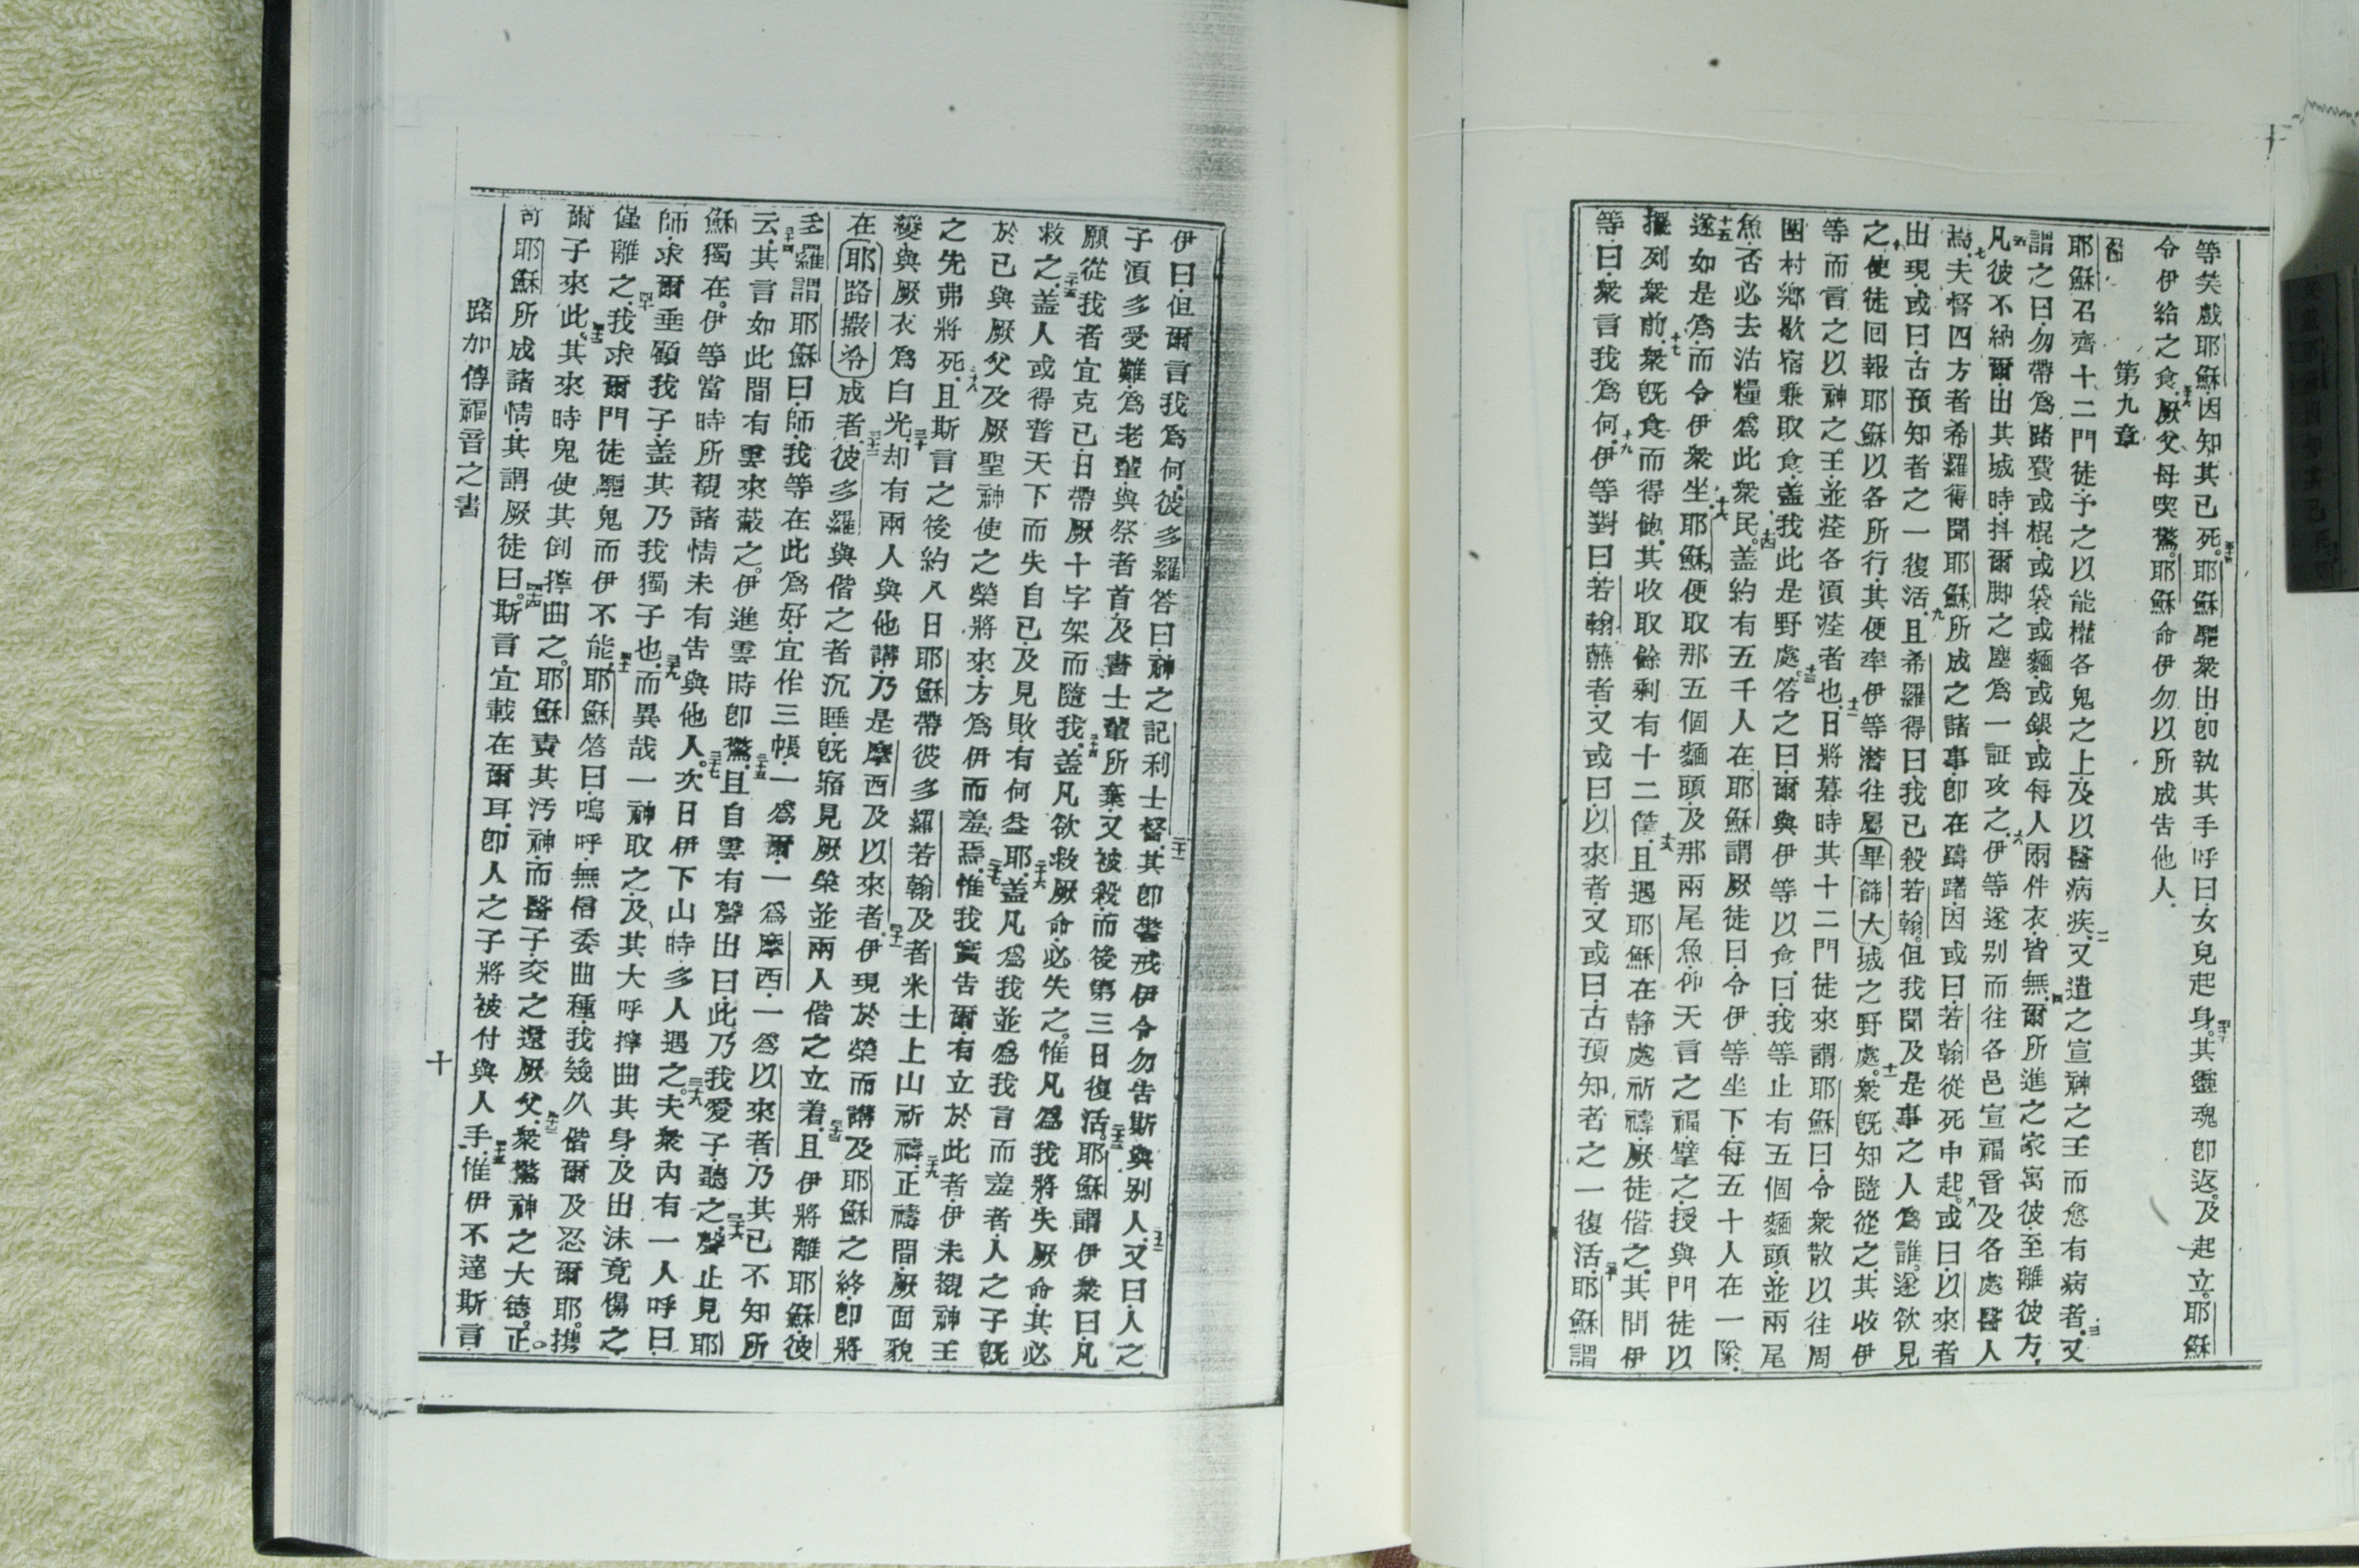 等矣戲耶穌因知其已死耶穌驅衆出卽執其手呼曰女兒起身其靈魂卽返及起立耶穌
令伊給之食厥父母喫驚耶穌命伊勿以所成告他人
第九章
耶穌召齊十二門徒予之以能權各鬼之上及以醫病疾又遣之宣神之王而愈有病者又
謂之曰勿帶爲路費或棍或袋或麵或銀或每人兩件衣皆無爾所進之家寓彼至離彼方
凡彼不納爾出其城時抖爾脚之塵爲一証攻之伊等遂别而往各邑宣福音及各處醫人
焉夫督四方者希羅得聞耶穌所成之諸事卽在躊躇因或曰若翰從死中起或曰以來者
出現或曰古預知者之一復活且希羅得曰我已殺若翰但我聞及是事之人爲誰遂欲見
之使徒回報耶穌以各所行其便率伊等潛往屬畢篩大城之野處衆既知隨從之其收伊
等而言之以神之王並痊各須痊者也日將暮時其十二門徒來謂耶穌曰令衆散以往周
圍村鄉歇宿乘取食盖我此是野處答之曰爾與伊等以食曰我等止有五個麵頭並兩尾
魚否必去沽糧爲此衆民盖約有五千人在耶穌謂厥徒曰令伊等坐下每五十人在一隊
遂如是爲而令伊衆坐耶穌便取那五個麵頭及那兩尾魚仰天言之福擘之授與門徒以
擺列衆前衆既食而得飽其收取餘剩有十二筐且遇耶穌在静處祈禱厥徒偕之其問伊
等曰衆言我爲何伊等對曰若翰蘸者又或曰以來者又或曰古預知者之一復活耶穌謂
伊曰但爾言我爲何彼多羅答曰神之記利士督其卽警戒伊令勿告斯與别人又曰人之
子須多受難爲老輩與祭者首及書士輩所棄又被殺而後第三日復活耶穌謂伊衆曰凡
願從我者宜克己日帶厥十字架而隨我盖凡欲救厥命必失之惟凡爲我將失厥命其必
救之盖人或得普天下而失自己及見敗有何益耶盖凡爲我並爲我言而羞者人之子旣
於己與厥父及厥聖神使之榮將來方爲伊而羞焉惟我實告爾有立於此者伊未覩神王
之先弗將死且斯言之後約八日耶穌帶彼多羅若翰及者米士上山祈禱正禱間厥面貌
變與厥衣爲白光却有兩人與他講乃是摩西及以來者伊現於榮而講及耶穌之終卽將
在耶路撒冷成者彼多羅與偕之者沉睡旣寤見厥榮並兩人偕之立着且伊將離耶穌彼
多羅謂耶穌曰師我等在此爲好宜作三帳一爲爾一爲摩西一爲以來者乃其已不知所
云其言如此間有雲來蔽之伊進雲時卽驚且自雲有聲出曰此乃我愛子聽之聲止見耶
穌獨在伊等當時所覩諸情未有告與他人次日伊下山時多人遇之夫衆內有一人呼曰
師求爾垂顧我子盖其乃我獨子也而異哉一神取之及其大呼㨆曲其身及出沫竟傷之
僅離之我求爾門徒驅鬼而伊不能耶穌答曰嗚呼無信委曲種我幾久偕爾及忍爾耶携
爾子來此其來時鬼使其倒㨆曲之耶穌責其汚神而醫子交之還厥父衆驚神之大德正
奇耶穌所成諸情其謂厥徒曰斯言宜載在爾耳卽人之子將被付與人手惟伊不達斯言
路加傳福音之書 十